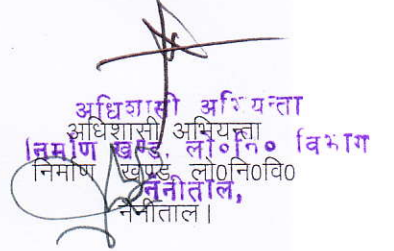 अधिशासी अभियन्ता
अधिशासी अभियन्ता
निर्माण खण्ड, लो०नि० विभाग
निर्माण खण्ड लो0नि0वि0
नैनीताल,
नैनीताल।